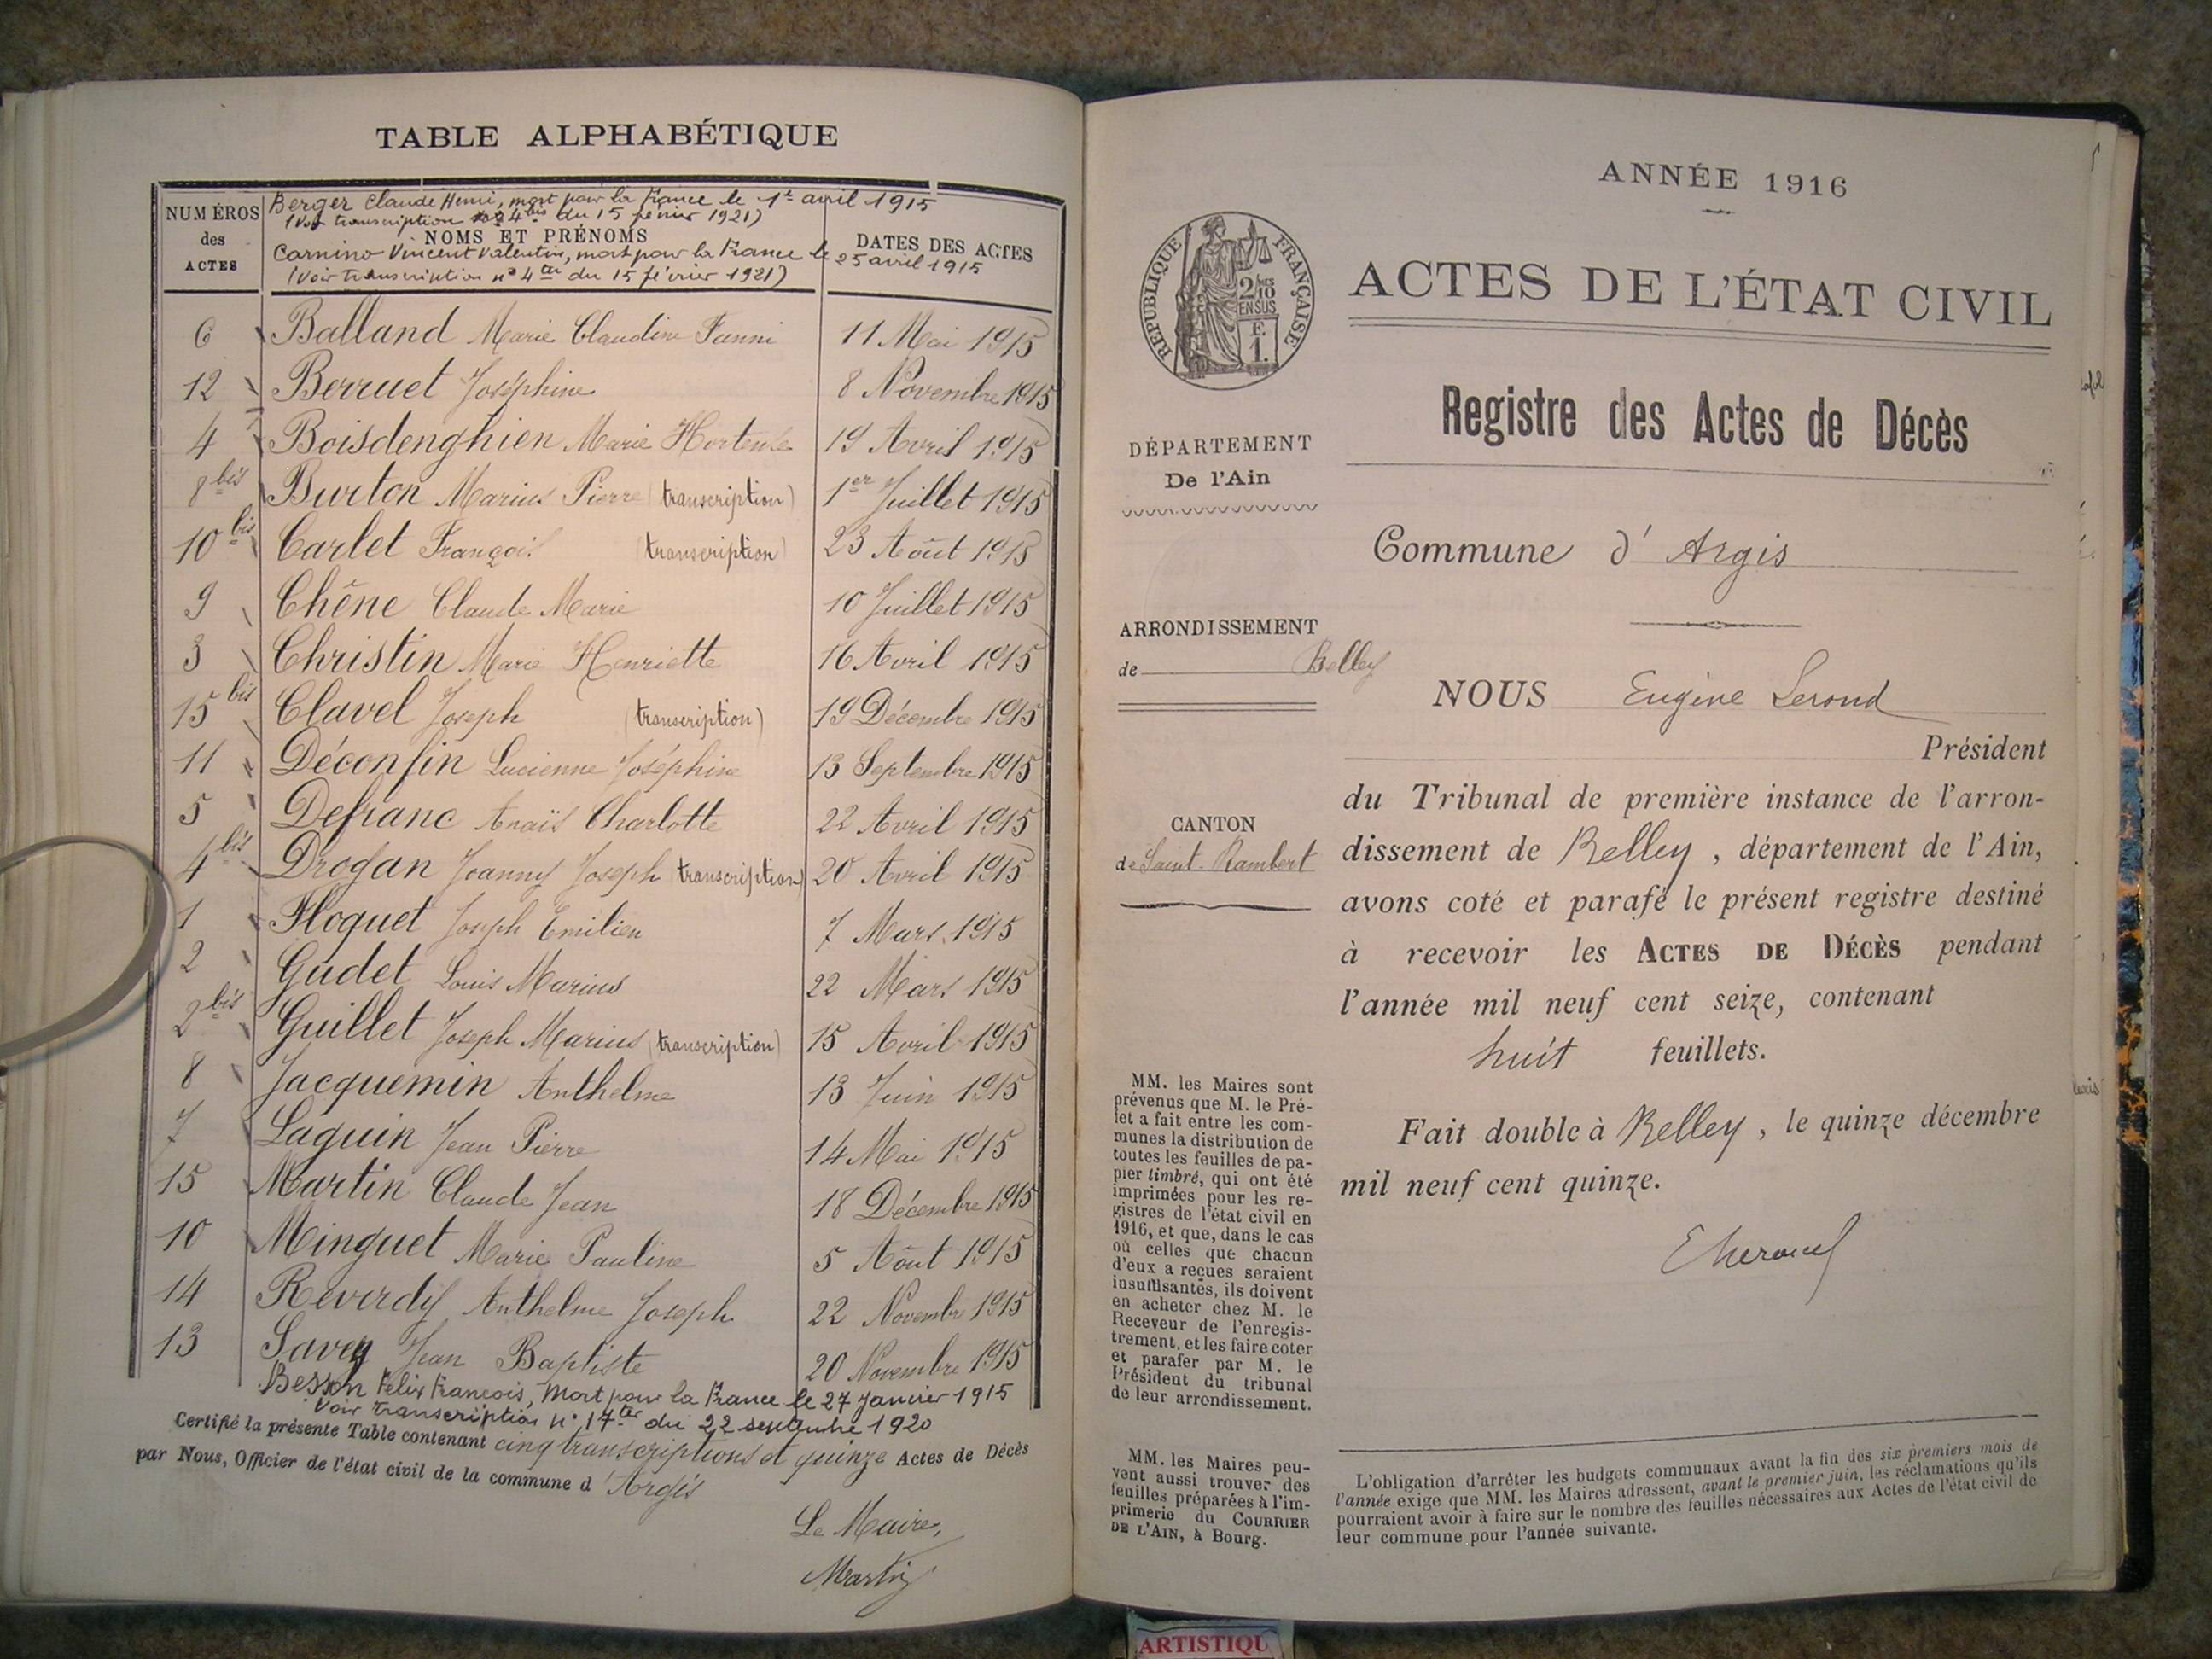 TABLE ALPHABÉTIQUE
Berger Claude Henri, mort pour la France le 1er avril 1915
(Voir transcription n° 4 bis du 15 février 1921)
NUMÉROS des ACTES
NOMS ET PRÉNOMS
DATES DES ACTES
Carnino Vincent Valentin, mort pour la France le 25 avril 1915
(Voir transcription n° 4 ter du 15 février 1921)
6 Balland Marie Claudine Fanni 11 Mai 1915
12 Berruet Joséphine 8 Novembre 1915
4 Boisdenghien Marie Hortense 19 Avril 1915
8 bis Burlon Marius Pierre (transcription) 1er Juillet 1915
10 bis Carlet François (transcription) 23 Août 1915
9 Chêne Claude Marie 10 Juillet 1915
3 Christin Marie Henriette 16 Avril 1915
15 bis Clavel Joseph (transcription) 19 Décembre 1915
11 Déconfin Lucienne Joséphine 13 Septembre 1915
5 Defranc Anaïs Charlotte 22 Avril 1915
4 bis Drogan Joanny Joseph (transcription) 20 Avril 1915
1 Floquet Joseph Emilien 7 Mars 1915
2 Gudet Louis Marius 22 Mars 1915
2 bis Guillet Joseph Marius (transcription) 15 Avril 1915
8 Jacquemin Anthelme 13 Juin 1915
7 Laguin Jean Pierre 14 Mai 1915
15 Martin Claude Jean 18 Décembre 1915
10 Minguet Marie Pauline 5 Août 1915
14 Reverdy Anthelme Joseph 22 Novembre 1915
13 Savey Jean Baptiste 20 Novembre 1915
Besson Felix Francois, Mort pour la France le 27 Janvier 1915
Voir transcription n° 17 ter du 22 septembre 1920
Certifié la présente Table contenant cinq transcriptions et quinze Actes de Décès
par Nous, Officier de l'état civil de la commune d'Argis
Le Maire,
Martin
ANNÉE 1916
RÉPUBLIQUE FRANÇAISE
2/10
EN SUS
F.
1.
ACTES DE L'ÉTAT CIVIL
Registre des Actes de Décès
DÉPARTEMENT
De l'Ain
Commune d'Argis
ARRONDISSEMENT
de Belley
NOUS Eugène Lerond
Président
du Tribunal de première instance de l'arron-
dissement de Belley, département de l'Ain,
avons coté et parafé le présent registre destiné
à recevoir les ACTES DE DÉCÈS pendant
l'année mil neuf cent seize, contenant
huit feuillets.
Fait double à Belley, le quinze décembre
mil neuf cent quinze.
CANTON
de Saint-Rambert
MM. les Maires sont
prévenus que M. le Pré-
fet a fait entre les com-
munes la distribution de
toutes les feuilles de pa-
pier timbré, qui ont été
imprimées pour les re-
gistres de l'état civil en
1916, et que, dans le cas
où celles que chacun
d'eux a reçues seraient
insuffisantes, ils doivent
en acheter chez M. le
Receveur de l'enregis-
trement, et les faire coter
et parafer par M. le
Président du tribunal
de leur arrondissement.
MM. les Maires peu-
vent aussi trouver des
feuilles préparées à l'im-
primerie du COURRIER
DE L'AIN, à Bourg.
L'obligation d'arrêter les budgets communaux avant la fin des six premiers mois de
l'année exige que MM. les Maires adressent, avant le premier juin, les réclamations qu'ils
pourraient avoir à faire sur le nombre des feuilles nécessaires aux Actes de l'état civil de
leur commune pour l'année suivante.
ARTISTIQU